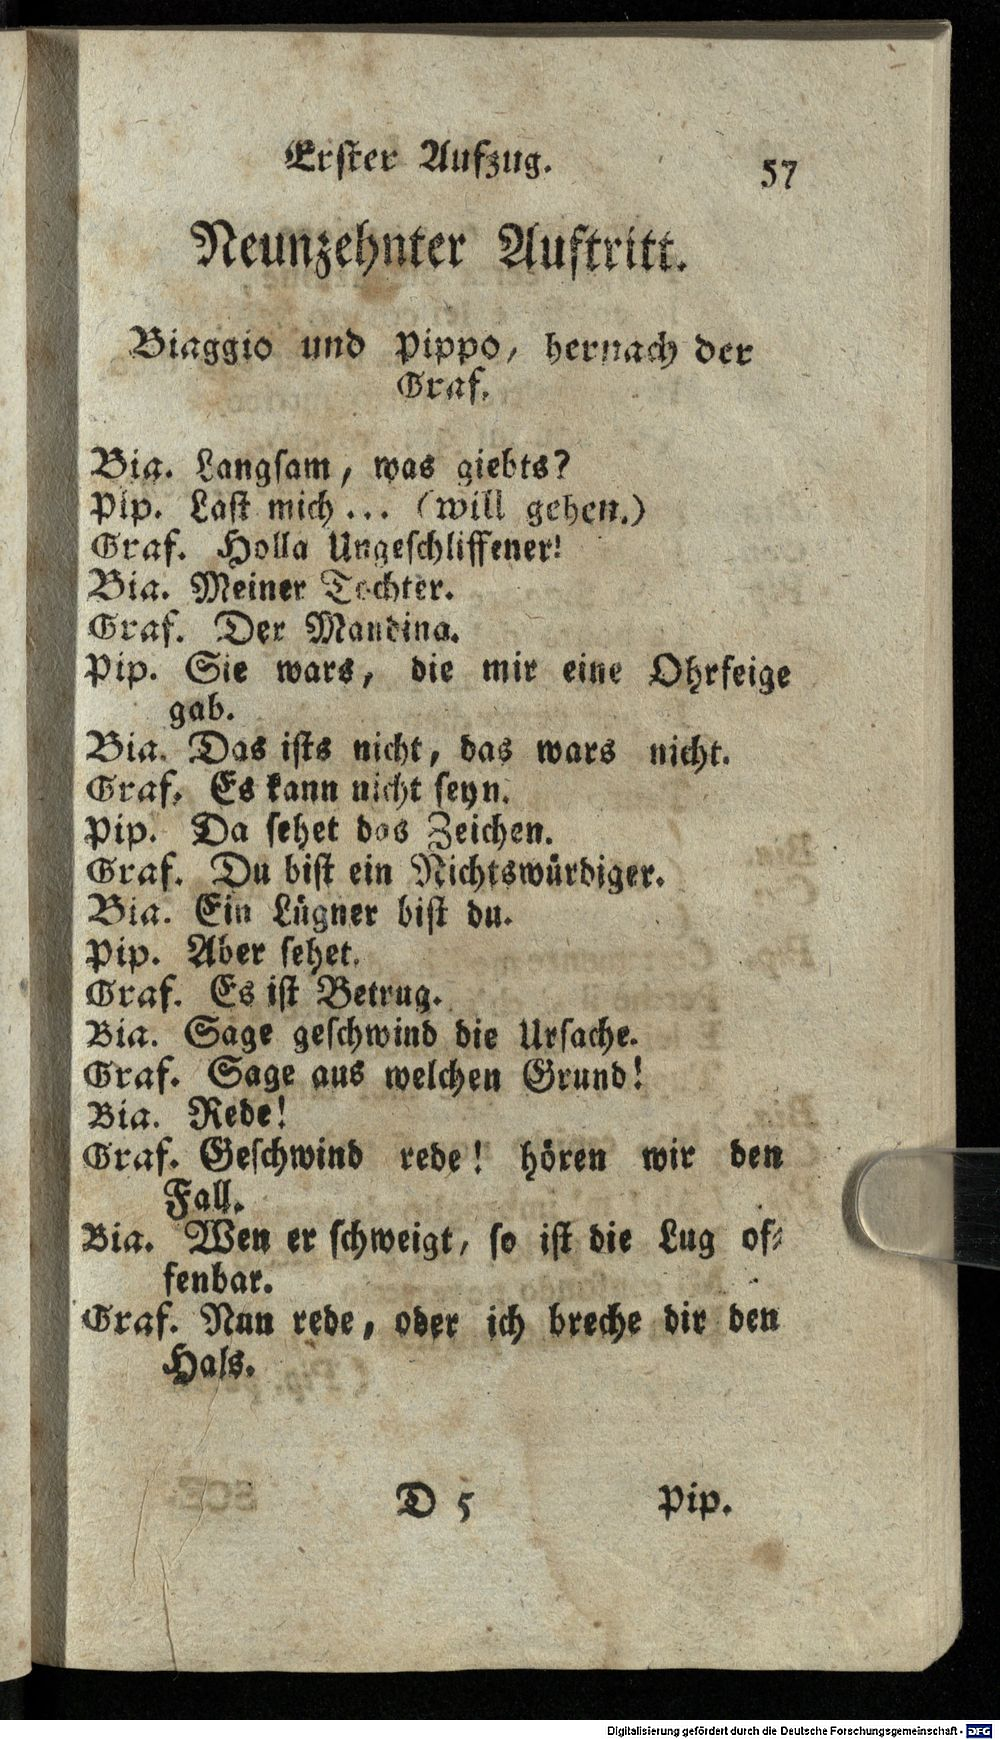 Erster Aufzug. 57
Neunzehnter Auftritt.
Biaggio und Pippo, hernach der
Graf.
Bia. Langsam, was giebts?
Pip. Last mich... (will gehen.)
Graf. Holla Ungeschliffener!
Bia. Meiner Tochter.
Graf. Der Mandina.
Pip. Sie wars, die mir eine Ohrfeige
gab.
Bia. Das ists nicht, das wars nicht.
Graf. Es kann nicht seyn.
Pip. Da sehet das Zeichen.
Graf. Du bist ein Nichtswürdiger.
Bia. Ein Lügner bist du.
Pip. Aber sehet.
Graf. Es ist Betrug.
Bia. Sage geschwind die Ursache.
Graf. Sage aus welchen Grund!
Bia. Rede!
Graf. Geschwind rede! hören wir den
Fall.
Bia. Wen er schweigt, so ist die Lug of=
fenbar.
Graf. Nun rede, oder ich breche dir den
Hals.
D 5 Pip.
Digitalisierung gefördert durch die Deutsche Forschungsgemeinschaft - DFG